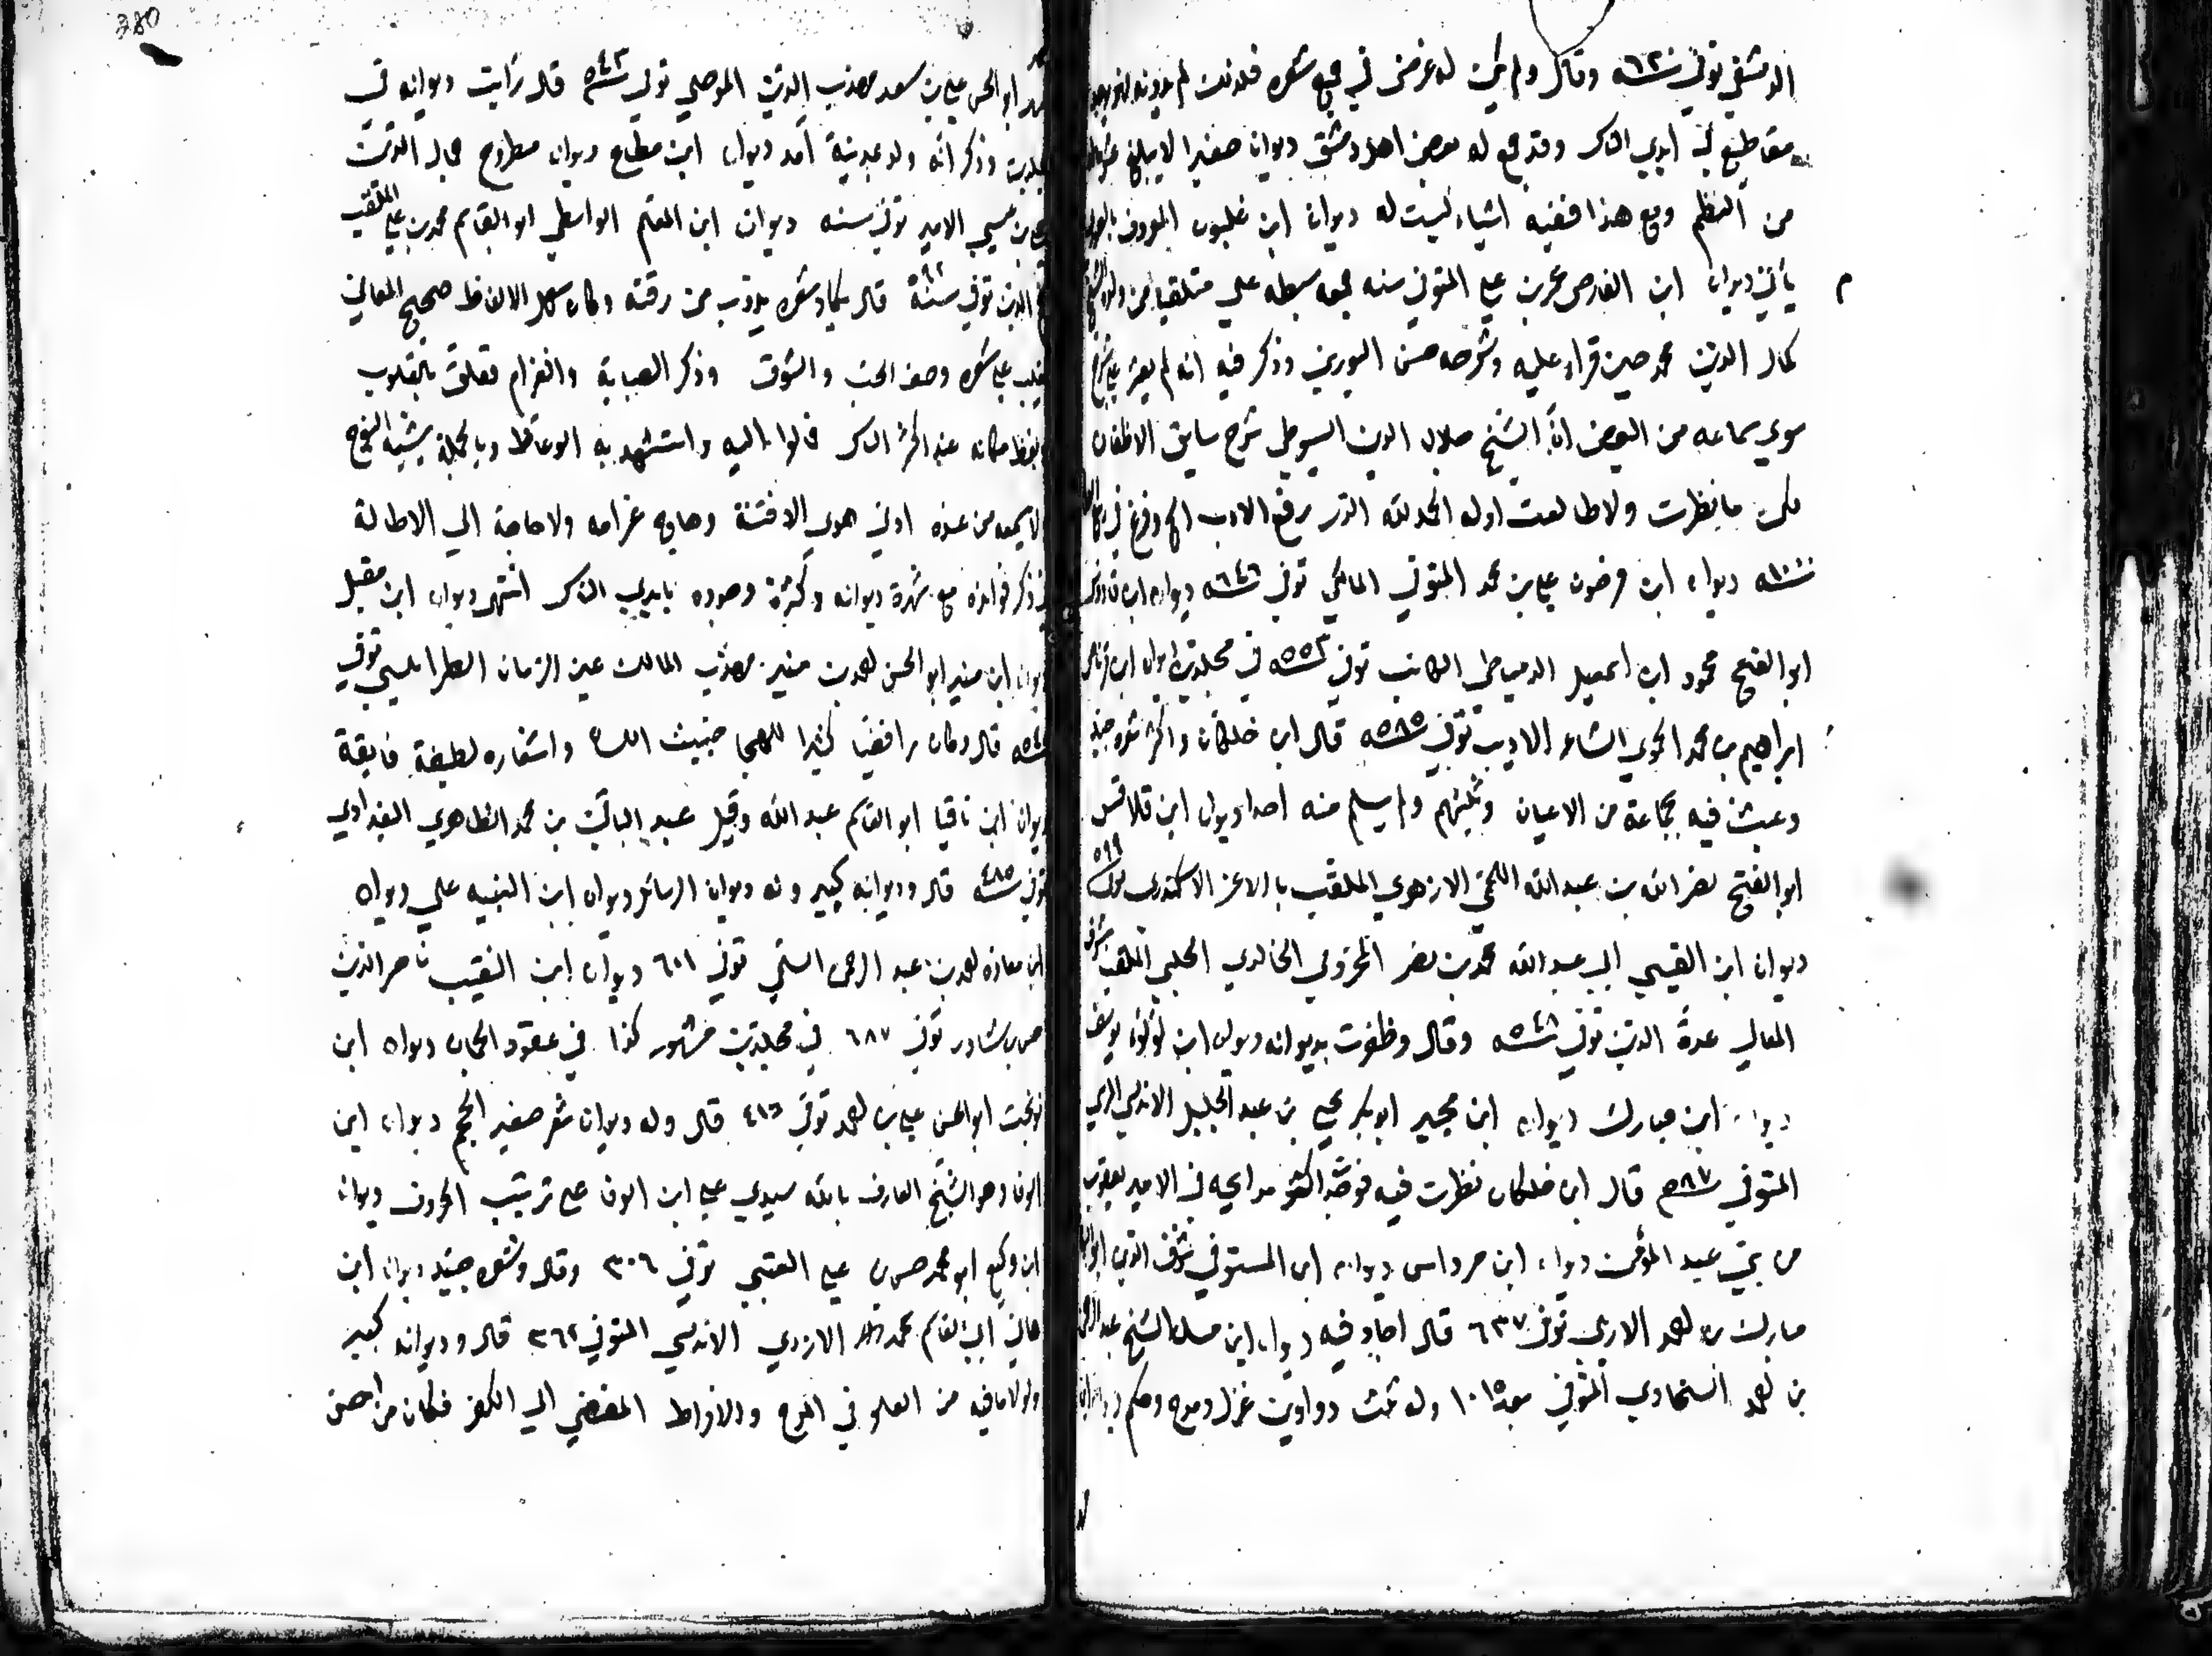 الدمشقي توفي سنة ٦٣٠ وقال ولم يكن له غرض في جمع شعره فلذلك لم يدونه فهو يوجد
مقاطيع في ايدي الناس وقد جمع له بعض اهل دمشق ديوانا صغيرا لا يبلغ عشر ماله
من النظم ومع هذا ففيه اشياء ليست له ديوان ابن غلبون المعروف
يأتي ديوان ابن الفارض عمر بن علي المتوفي سنه جمعه سبطه علي متلقيا من ولد الشيخ
كمال الدين محمد حين قراء عليه وشرحه حسن البوريني وذكر فيه انه لم يعثر علي شرح
سوي سماعه من البعض ان الشيخ جلال الدين السيوطي شرح سايق الاظعان
لكن ما نظرت ولا طالعت اوله الحمد لله الذي رفع الادب الخ وفرغ في
سنة ١٠٠٠ ديوان ابن فرضون علي بن محمد المتوفي المالكي توفي سنة ٦٤٦ ديوان ابن قادوس
ابو الفتح محمود ابن اسمعيل الدمياطي الكاتب توفي سنة ٥٥٣ في مجلدين ديوان ابن
ابراهيم بن محمد الحموي الشاعر الاديب توفي سنة ٥٨٥ قال ابن خلكان واكثر شعره جيد
وعبث فيه بجماعة من الاعيان وثلبهم ولم يسلم منه احد ديوان ابن قلاقس
ابو الفتح نصر الله بن عبد الله اللخمي الازهري الملقب بالاعز الاسكندري توفي ٥٩٩
ديوان ابن القيسي ابي عبد الله محمد بن نصر المخزومي الخالدي الحلبي الملقب شرف
المعالي عدة الدين توفي سنة ٥٤٨ وقال وظفرت بديوانه ديوان ابن لؤلؤ يوسف
ديوان ابن مبارك ديوان ابن مجير ابو بكر يحيي بن عبد الجليل الاندلسي المرسي
المتوفي سنة ٥٨٧ قال ابن خلكان نظرت فيه فوجدت اكثر مدايحه في الامير يعقوب
من بني عبد المؤمن ديوان ابن مرداس ديوان ابن المستوفي شرف الدين ابو البركات
مبارك بن احمد الاربلي توفي ٦٣٧ قال اجاد فيه ديوان ابن مسك الشيخ عبد الرحمن
بن احمد السخاوي المتوفي بعد ١٠١٥ وله ثلث دواوين غزل ومدح وحكم ديوان ابن
280
ابو الحسن علي بن سعد مهذب الدين الموصلي توفي سنة ٥٤٣ قال رأيت ديوانه في
مجلدين وذكر انه ولد بمدينة آمد ديوان ابن مطاع ديوان مطروح جمال الدين
يحيي بن عيسي الامير توفي سنه ديوان ابن المعلم الواسطي ابو القاسم محمد بن علي الملقب
نجم الدين توفي سنة ٥٩٢ قال يكاد شعره يذوب من رقته وكان سهل الالفاظ صحيح المعاني
يغلب علي شعره وصف الحب والشوق وذكر الصبابة والغرام فعلق بالقلوب
ولطف مكانه عند اكثر الناس فمالوا اليه واستشهد به الوعاظ وبالجملة يشبه النوح
لا يسمعه من عنده ادني هوي الا فتنه وهاج غرامه ولا حاجة الي الاطالة
في ذكر فوائده مع شهرة ديوانه وكثرة وجوده بايدي الناس انتهي ديوان ابن مقبل
ديوان ابن منير ابو الحسن احمد بن منير مهذب المالك عين الزمان الطرابلسي توفي
سنة ٥٤٨ قال وكان رافضيا كثير الهجا خبيث اللسان واشعاره لطيفة فايقة
ديوان ابن ناقيا ابو القاسم عبد الله وقيل عبد الباقي بن محمد الظاهري البغدادي
توفي سنة ٤٨٥ قال وديوانه كبير وله ديوان الرسائل ديوان ابن النبيه علي ديوان
ابن معاذه احمد بن عبد الرحمن السني توفي ٦٠١ ديوان ابن النقيب ناصر الدين
حسن بن شاور توفي ٦٨٧ في مجلدين مشهور كذا في عقود الجمان ديوان ابن
نوبخت ابو الحسن علي بن احمد توفي ٤١٦ قال وله ديوان شعر صغير الحجم ديوان ابن
الوفا وهو الشيخ العارف بالله سيدي علي ابن الوفا علي ترتيب الحروف ديوان
ابن وكيع ابو محمد حسن بن علي العتبي توفي ٣٠٦ وقال وشعره جيد ديوان ابن
هاني ابي القاسم محمد الازدي الاندلسي المتوفي ٣٦٢ قال وديوانه كبير
ولولا ما فيه من الغلو في المدح والافراط المفضي الي الكفر فكان من احسن